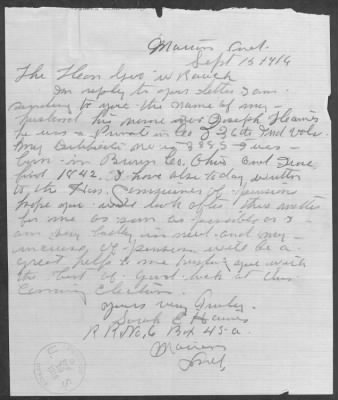 Marion, Ind.
Sept 15 1916
The Hon Geo W Rauch
In reply to your letter I am
sending to you the name of my
husband his name was Joseph Haines
he was a Private in Co I 36th Ind Vols.
my Certificate no is
born in Ohio and June
first 1842. I have also today written
to the Hon. of pension
hope you will look after this matter
for me as soon as possible as I
am very badly in need and my
increas of pension will be a
great help to me you with
the best of good luck at this
coming Election
yours very Truley
Sarah E Haines
R R No, 6 Box 45-a
Marion
Ind,